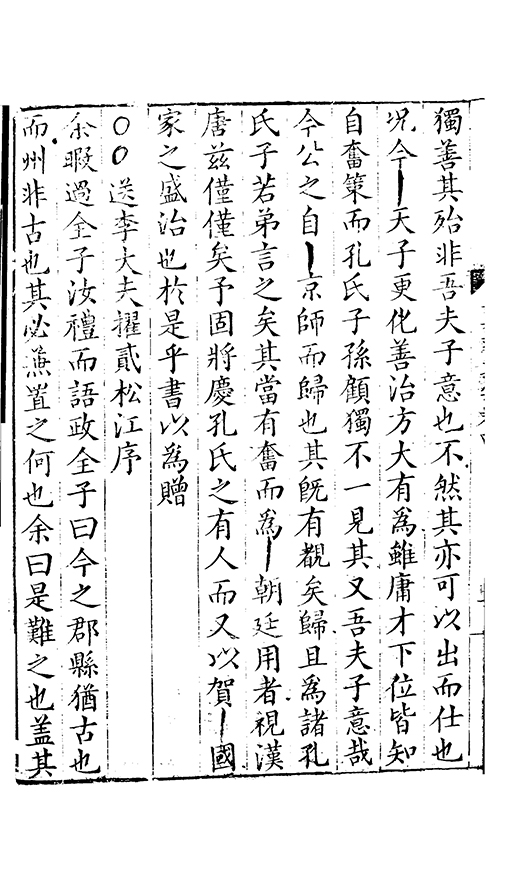 獨善其殆非吾夫子意也不然其亦可以出而仕也
况今天子更化善治方大有為雖庸才下位皆知
自奮策而孔氏子孫顧獨不一見其又吾夫子意哉
今公之自京師而歸也其既有覩矣歸且為諸孔
氏子若弟言之矣其當有奮而為朝廷用者視漢
唐兹僅僅矣予固將慶孔氏之有人而又以賀國
家之盛治也於是乎書以為贈
〇〇送李大夫擢貳松江序
余暇過全子汝禮而語政全子曰今之郡縣猶古也
而州非古也其必兼置之何也余曰是難之也盖其